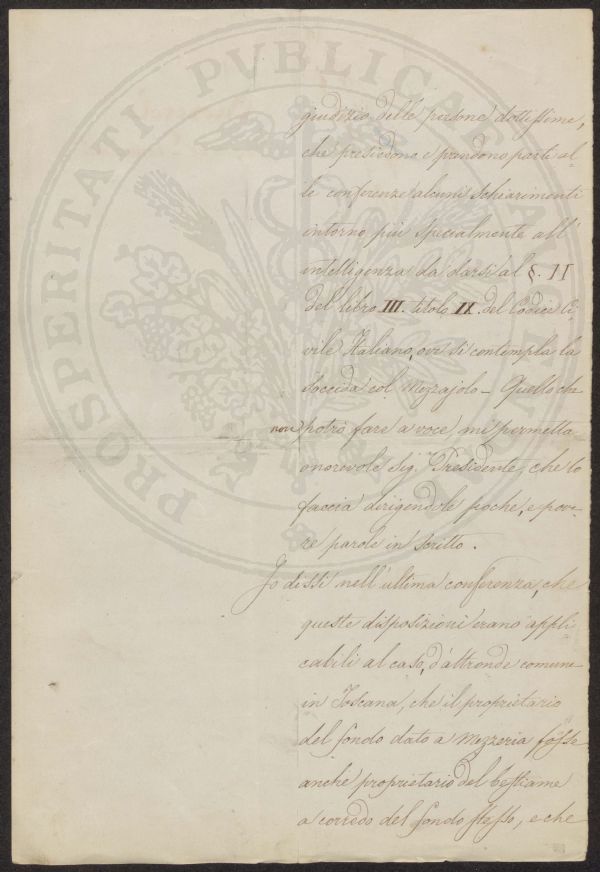 PROSPERITATI PVBLICAE AVGENDAE
giudizio delle persone dottissime,
che presiedono e prendono parte al-
le conferenze alcuni schiarimenti
intorno più specialmente all'
intelligenza da darsi al §. II
del libro III. titolo IX. del Codice Ci-
vile Italiano, ove si contempla la
soccida col Mezzajolo – Quello che
non potrò fare a voce mi permetta
onorevole Sig. Presidente, che lo
faccia dirigendole poche, e pove-
re parole in scritto.
Io dissi nell'ultima conferenza, che
queste disposizioni erano appli
cabili al caso, d'altronde comune
in Toscana, che il proprietario
del fondo dato a Mezzeria fosse
anche proprietario del bestiame
a corredo del fondo stesso, e che